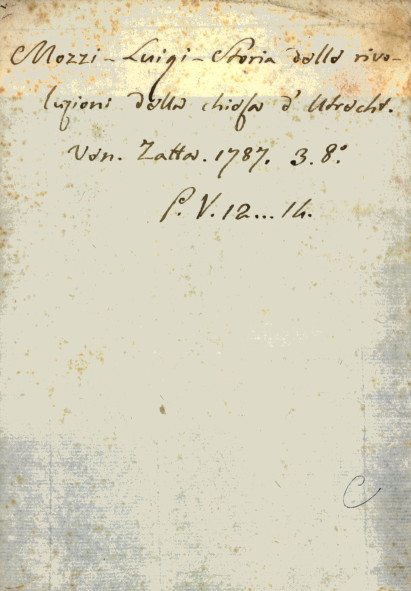 Mozzi - Luigi - Storia delle rivo-
luzioni della chiesa d'Utrecht.
Ven. Zatta. 1787. 3. 8.°
P. V. 12... 14.
C